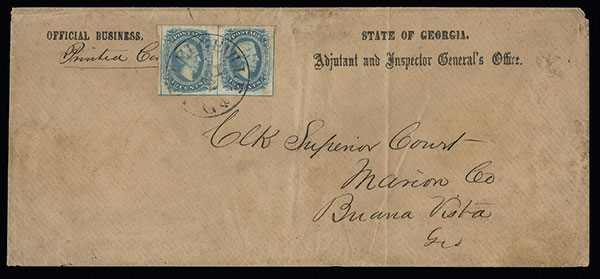 OFFICIAL BUSINESS,
Printed
STATE OF GEORGIA.
Adjutant and Inspector General's Office.
POSTAGE POSTAGE
Clk Superior Court
Marion Co
Buana Vista
Geo